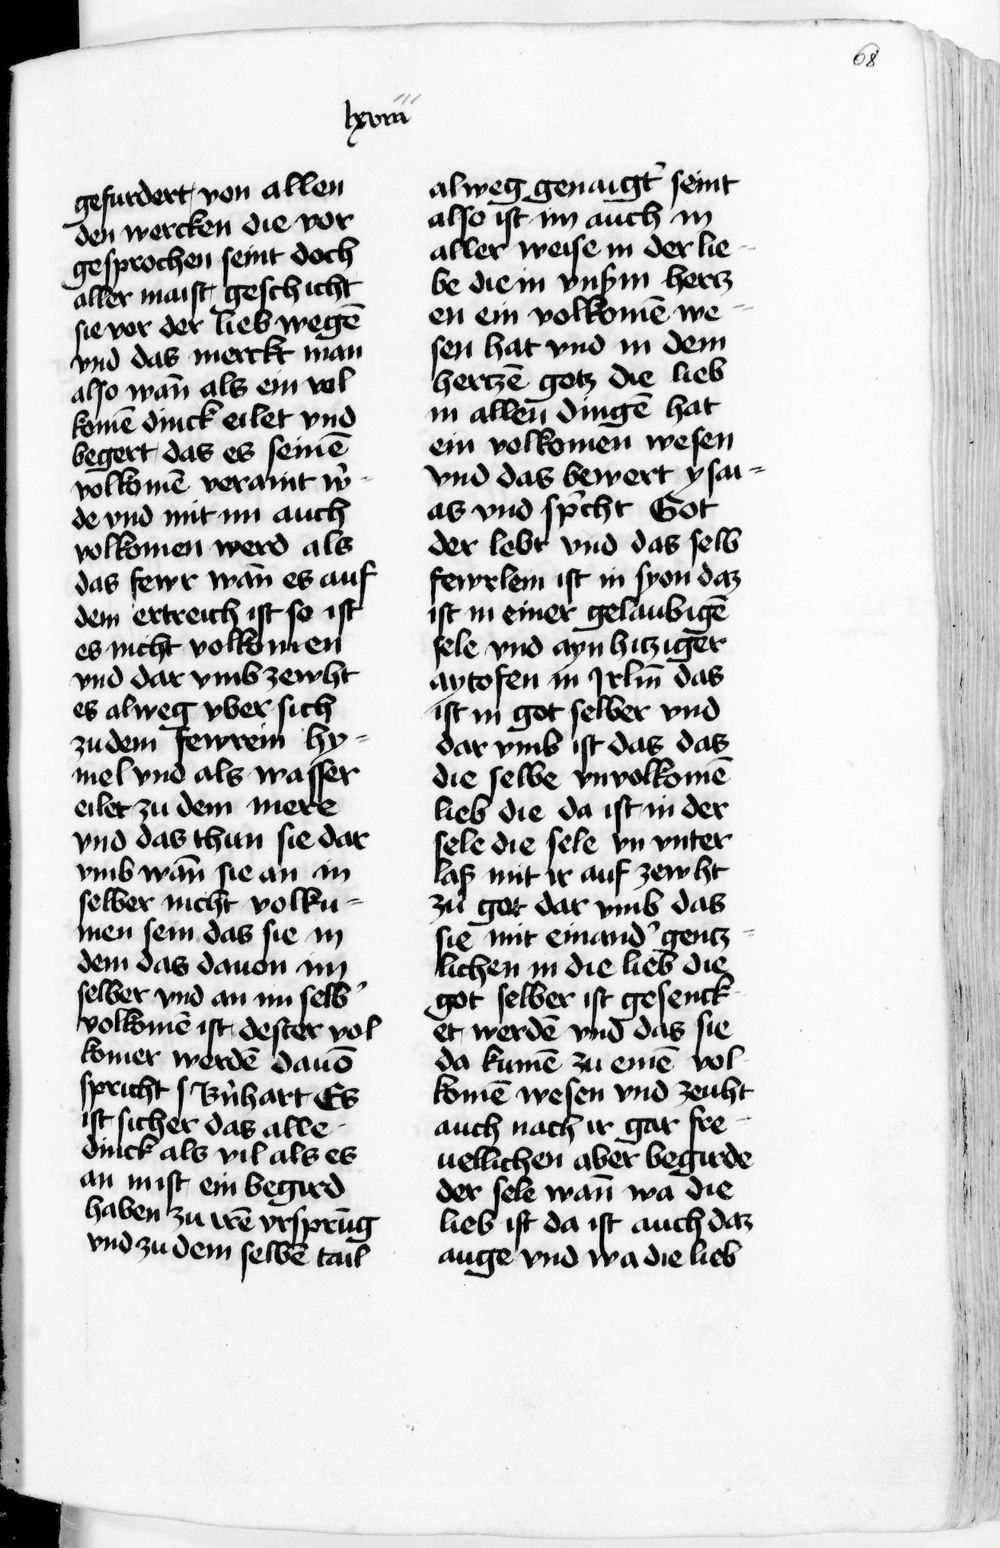 68
lxviii
gefurdert von allen
den wercken die vor
gesprochen seint doch
aller maist geschicht
sie vor der lieb wegē
vnd das merckt man
also wañ als ein vol
komē dinck eilet vnd
begert das es seinē
volkomē veraint w̉
de vnd mit im auch
volkomen werd als
das fewr wañ es auf
dem ertreich ist so ist
es nicht volkomen
vnd dar vmb zewht
es alweg vber sich
zu dem fewrein hy=
mel vnd als wasser
eilet zu dem mere
vnd das thun sie dar
vmb wañ sie an in
selber nicht volku=
men sein das sie in
dem das dauon im
selber vnd an im selb̉
volkomē ist dester vol
komer werdē dauō
spricht s Bn̉hart Es
ist sicher das alle
dinck als vil als es
an in ist ein begird
haben zu irē vrsprūg
vnd zu dem selbē tail
alweg genaigt̉ seint
also ist im auch in
aller weise in der lie-
be die in vns̉m hertz
en ein volkomē we-
sen hat vnd in dem
hertzē gotz die lieb
in allen dingē hat
ein volkomen wesen
vnd das bewert ysai=
as vnd sp̉cht Got
der lebt vnd das selb
fewrlein ist in syon daz
ist in einer gelaubigē
sele vnd ayn hitziger
aytofen in Jrlm̄ das
ist in got selber vnd
dar vmb ist das das
die selbe vnvolkomē
lieb die da ist in der
sele die sele vn vnter
laß mit ir auf zewht
zu got dar vmb das
sie mit einand̉ gentz-
lichen in die lieb die
got selber ist gesenck
et werdē vnd das sie
da kumē zu einē vol
komē wesen vnd zeuht
auch nach ir gar fre-
uellichen aber begirde
der sele wañ wa die
lieb ist da ist auch daz
auge vnd wa die lieb